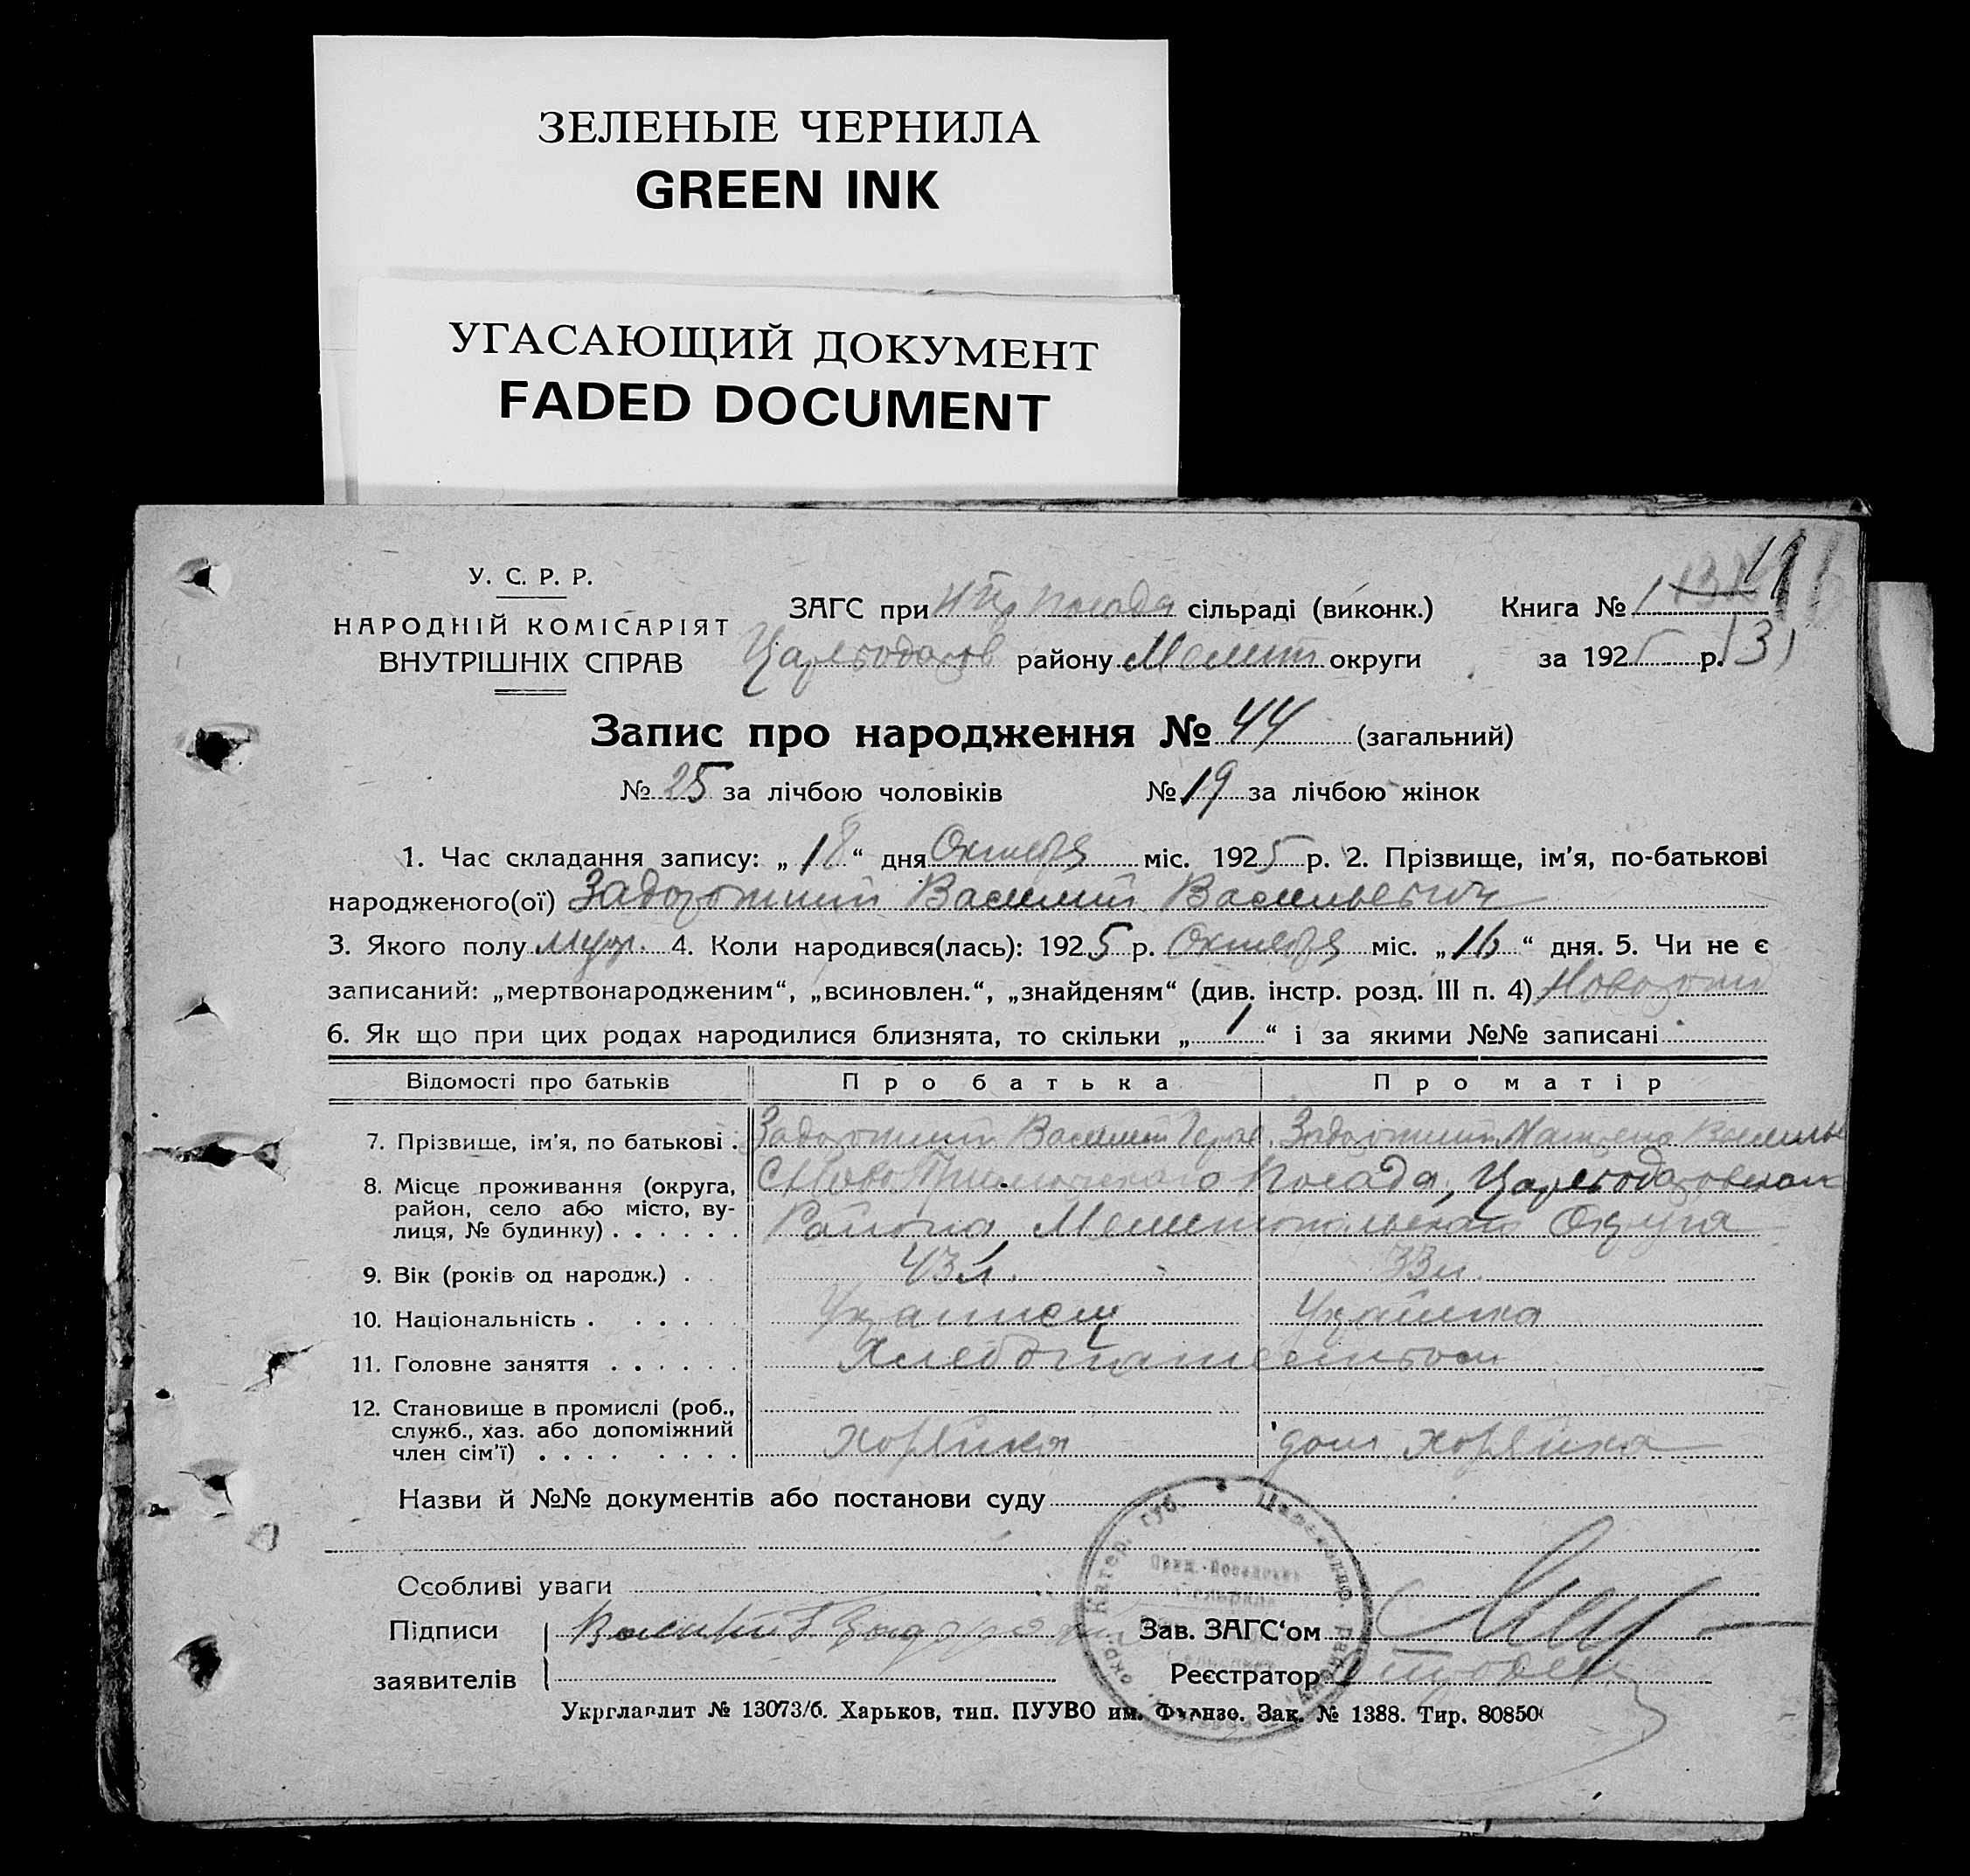 ЗЕЛЕНЫЕ ЧЕРНИЛА
GREEN INK
УГАСАЮЩИЙ ДОКУМЕНТ
FADED DOCUMENT
У. С. Р. Р.
НАРОДНІЙ КОМІСАРІЯТ
ВНУТРІШНІХ СПРАВ
ЗАГС при Посада сільраді (виконк.) Книга № 1
району Мелит округи за 1925 р. 131
Запис про народження № 44 (загальний)
№ 25 за лічбою чоловіків № 19 за лічбою жінок
1. Час складання запису: „18“ дня Октября міс. 1925 р. 2. Прізвище, ім’я, по-батькові
народженого(ої) Задорожний Василий Васильевич
3. Якого полу муж. 4. Коли народився(лась): 1925 р. Октября міс. „16“ дня. 5. Чи не є
записаний: „мертвонародженим“, „всиновлен.“, „знайденям“ (див. інстр. розд. III п. 4)
6. Як що при цих родах народилися близнята, то скільки „1“ і за якими №№ записані
Відомості про батьків Про батька Про матір
7. Прізвище, ім’я, по батькові . Задорожний Василий Задорожний
8. Місце проживання (округа,
район, село або місто, ву-
лиця, № будинку) . . . . . .
Посада,
Района Мелитопольского Округа
9. Вік (років од народж.) . 43 л. 33 л.
10. Національність . . . . . . Украинец Украинка
11. Головне заняття . . . . . . Хлебопашеством
12. Становище в промислі (роб.,
служб., хаз. або допоміжний
член сім’ї) . . . . . . . .
хозяйка
Назви й №№ документів або постанови суду
Особливі уваги
Підписи
заявителів
Зав. ЗАГС‘ом
Реєстратор
Укрглавлит № 13073/б. Харьков, тип. ПУУВО им. Фрунзе. Зак. № 1388. Тир. 80850